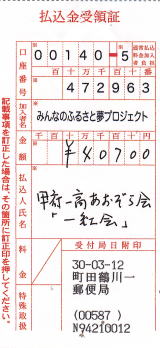 払込金受領証
口座番号 00140-5 通常払込料金加入者負担
百十万千百十番
472963
加入者名 みんなのふるさと夢プロジェクト
金額 千百十万千百十円
¥40700
払込人氏名
甲府一高あおぞら会
「一紅会」
料金
特殊取扱
受付局日附印
30-03-12
町田鶴川一
郵便局
(00587)
N94210012
記載事項を訂正した場合は、その箇所に訂正印を押してください。